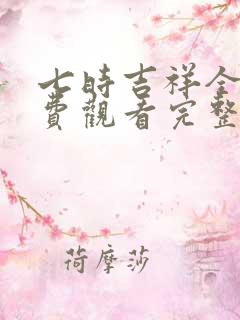 七時吉祥全
費觀看完整
荷摩莎